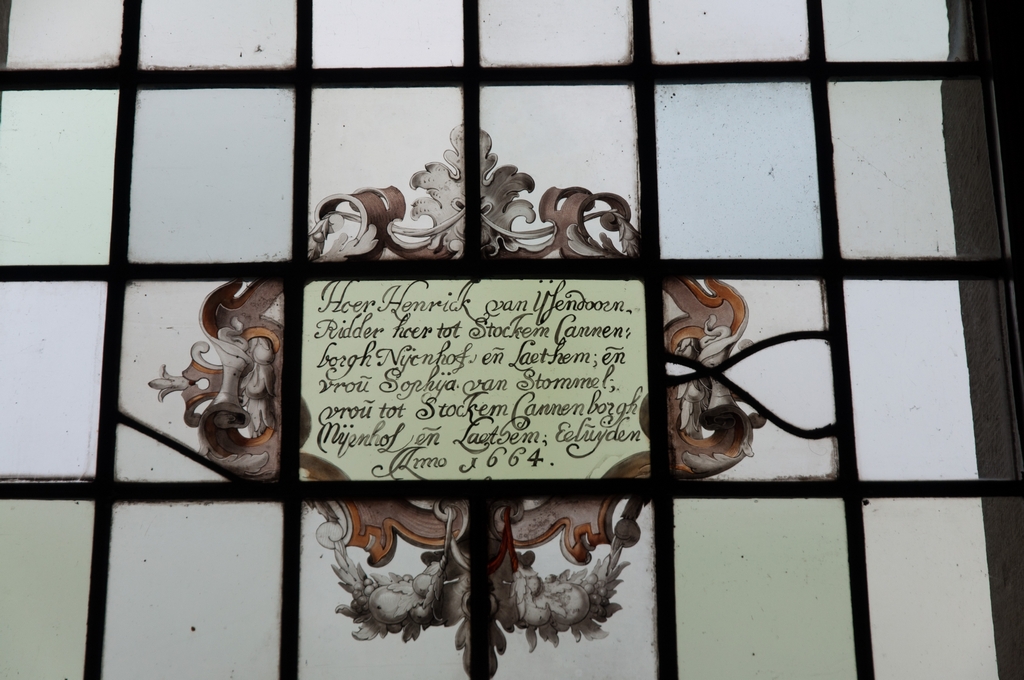 Heer Henrick van Ysendoorn,
Ridder heer tot Stockem Cannen:
borgh Nÿenhof, eñ Laethem; eñ
vroū Sophÿa van Stommel;
vroū tot Stockem Cannenborgh
Nÿenhof, eñ Laethem; Eeluÿden
Anno 1664.